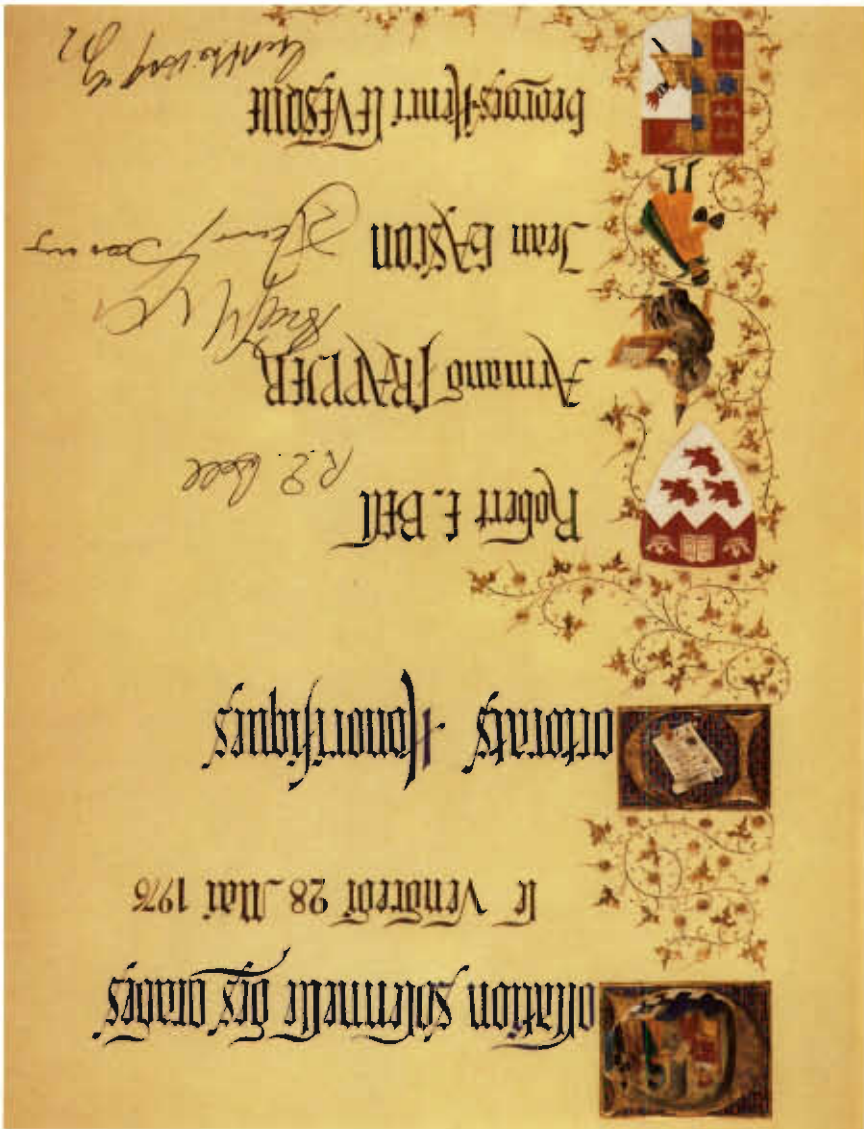 Collation solennelle des grades
le Vendredi 28 Mai 1976
Doctorats Honorifiques
Robert E. BELL
R E Bell
Armand FRAPPIER
Jean GASCON
Georges-Henri LEVESQUE